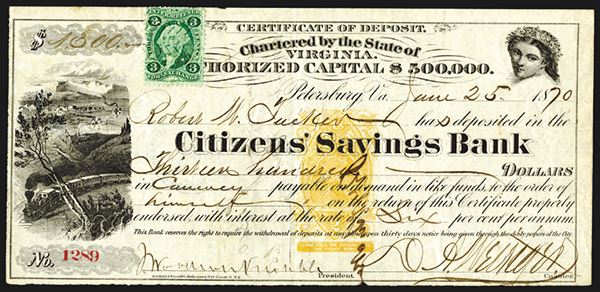 CERTIFICATE OF DEPOSIT.
$1,300.—
3 INTER. 3
3 3
FOR. EXCHANGE
Chartered by the State of
VIRGINIA.
THORIZED CAPITAL $500,000.
Petersburg, Va. June 25 1870
Robert W. Tucker has deposited in the
Citizens' Savings Bank
Thirteen hundred DOLLARS
in Currency payable on demand in like funds, to the order of
himself on the return of this Certificate properly
endorsed, with interest at the rate of Six per cent per annum.
This Bank reserves the right to require the withdrawal of deposits at any time upon thirty days notice being given through the daily papers of the City.
No. 1289
President
Cashier